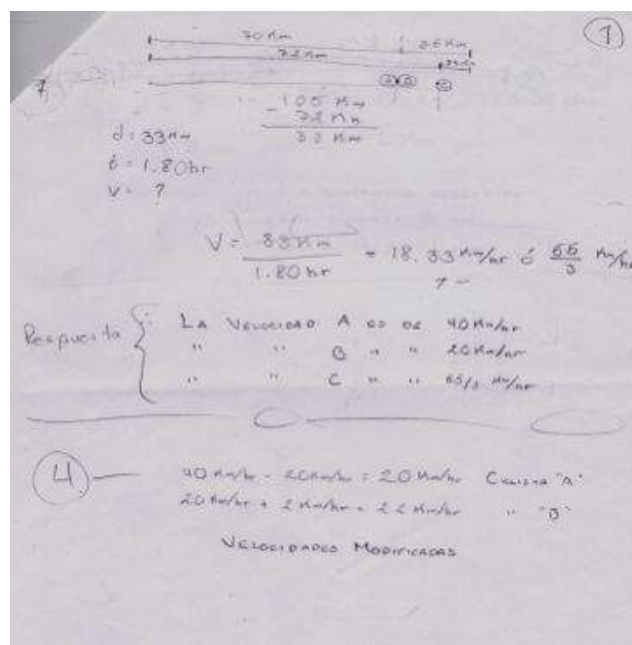 1
70 Km 35 Km
72 Km
7
105 Km
- 72 Km
33 Km
d = 33 Km
t = 1.80 hr
V = ?
V = 33 Km / 1.80 hr = 18.33 Km/hr ó 55/3 Km/hr
Respuesta { : LA VELOCIDAD A ES DE 40 Km/hr
" " B " " 20 Km/hr
" " C " " 55/3 Km/hr
4 — 40 Km/hr - 20 Km/hr = 20 Km/hr "A"
20 Km/hr + 2 Km/hr = 22 Km/hr " "B"
VELOCIDADES MODIFICADAS